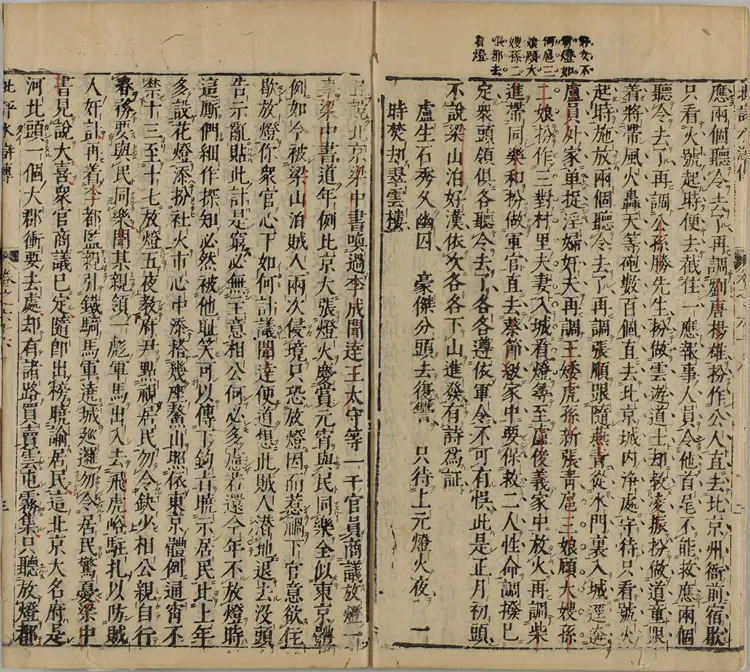 婦女不
看燈如
何扈三
娘顧大
嫂孫二
娘都去
看燈
應兩個聽令去了再調劉唐楊雄扮作公人直去北京州衙前宿歇
只看火號起時便去截住一應報事人員令他首尾不能救應兩個
聽令去了再調公孫勝先生扮做雲遊道士却教凌振扮做道童跟
着將帶風火轟天等砲數百個直去北京城內净處守待只看號火
起時施放兩個聽令去了再調張順跟隨燕青從水門裏入城逕奔
盧員外家單捉淫婦奸夫再調王矮虎孫新張青扈三娘顧大嫂孫
二娘扮作三對村里夫妻入城看燈尋至盧俊義家中放火再調柴
進帶同樂和扮做軍官直去蔡節級家中要保救二人性命調撥已
定衆頭領俱各聽令去了各各遵依軍令不可有悞此是正月初頭
不說梁山泊好漢依次各各下山進發有詩爲証
盧生石秀久幽囚　豪傑分頭去復讐　只待上元燈火夜　一
時焚却翠雲樓
且說北京梁中書喚過李成聞達王太守等一干官員商議放燈一
事梁中書道年例北京大張燈火慶賞元宵與民同樂全似東京體
例如今被梁山泊賊人兩次侵境只恐放燈因而惹禍下官意欲住
歇放燈你衆官心下如何計議聞達便道想此賊人潜地退去没頭
告示亂貼此計是窮必無主意相公何必多慮若還今年不放燈時
這厮們細作探知必然被他耻笑可以傳下鈞旨曉示居民比上年
多設花燈添扮社火市心中添搭幾座鰲山照依東京體例通宵不
禁十三至十七放燈五夜教府尹點視居民勿令缺少相公親自行
春務要與民同樂聞某親領一彪軍馬出入去飛虎峪駐扎以防賊
人奸計再着李都監親引鐵騎馬軍遶城廵邏勿令居民驚憂梁中
書見說大喜衆官商議已定隨卽出榜曉諭居民這北京大名府是
河北頭一個大郡衝要去處却有諸路買賣雲屯霧集只聽放燈都
批評水滸傳